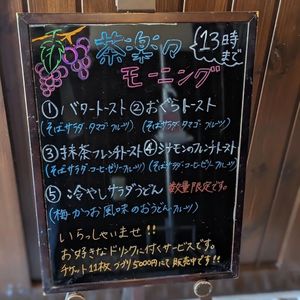 茶楽の
モーニング
13時まで
①バタートースト ②おぐらトースト
(そばサラダ・タマゴ・フルーツ) (そばサラダ・タマゴ・フルーツ)
③抹茶フレンチトースト ④シナモンフレンチトースト
(そばサラダ・コーヒーゼリー・フルーツ) (そばサラダ・コーヒーゼリー・フルーツ)
⑤冷やしサラダうどん 数量限定です。
(梅・かつお風味のおうどん・フルーツ)
いらっしゃいませ!!
お好きなドリンクに付くサービスです。
チケット11枚つづり5000円にて販売中です!!